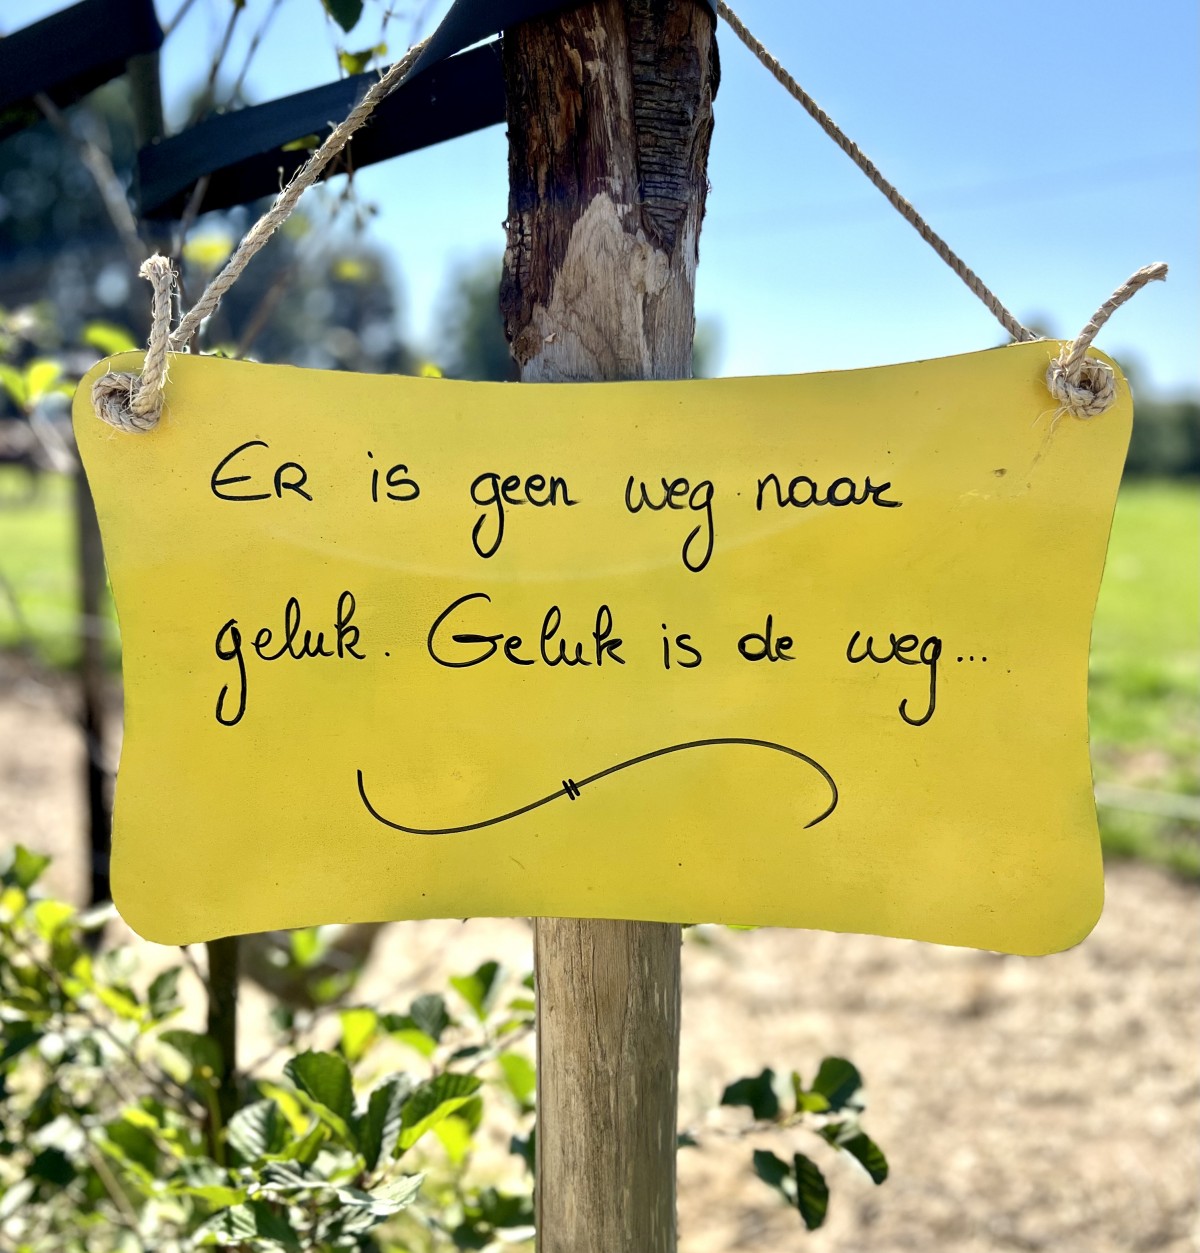 Er is geen weg naar
geluk. Geluk is de weg...